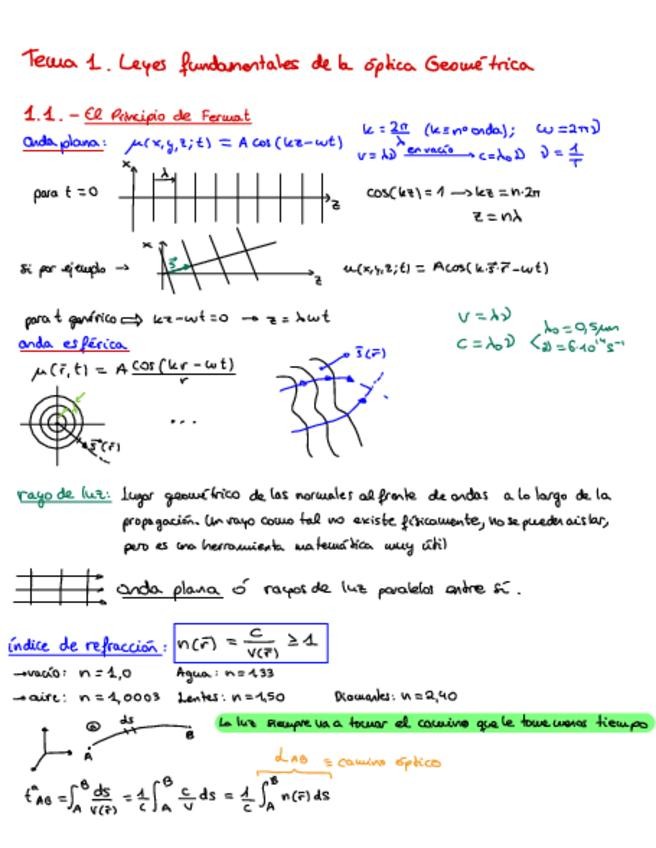 Tema 1. Leyes fundamentales de la óptica Geométrica
1.1. - El Principio de Fermat
onda plana: μ(x,y,z;t) = A cos(kz-ωt)
k = 2π/λ (k≡nº onda); ω=2πν
v=λν en vacío → c=λ₀ν ν=1/T
para t=0
x
λ
z
cos(kz)=1 → kz=n·2π
z=nλ
Si por ejemplo →
x
s⃗
z
u(x,y,z;t) = Acos(k·s⃗·r⃗-ωt)
para t genérico ⇒ kz-ωt=0 → z=λωt
v=λν
c=λ₀ν
λ₀=0,5μm
ν=6·10¹⁴s⁻¹
onda esférica
μ(r⃗,t) = A cos(kr-ωt)/r
s⃗(r⃗)
...
s⃗(r⃗)
rayo de luz: Lugar geométrico de las normales al frente de ondas a lo largo de la
propagación. Un rayo como tal no existe físicamente, no se pueden aislar,
pero es una herramienta matemática muy útil
onda plana ó rayos de luz paralelos entre sí.
índice de refracción: n(r⃗) = c/v(r⃗) ≥ 1
→vacío: n=1,0 Agua: n=1,33
→aire: n=1,0003 Lentes: n=1,50 Diamantes: n=2,40
a ds
A B
La luz siempre va a tomar el camino que le tome menos tiempo
L_AB ≡ camino óptico
tᵃ_AB = ∫_A^B ds/v(r⃗) = 1/c ∫_A^B c/v ds = 1/c ∫_A^B n(r⃗) ds